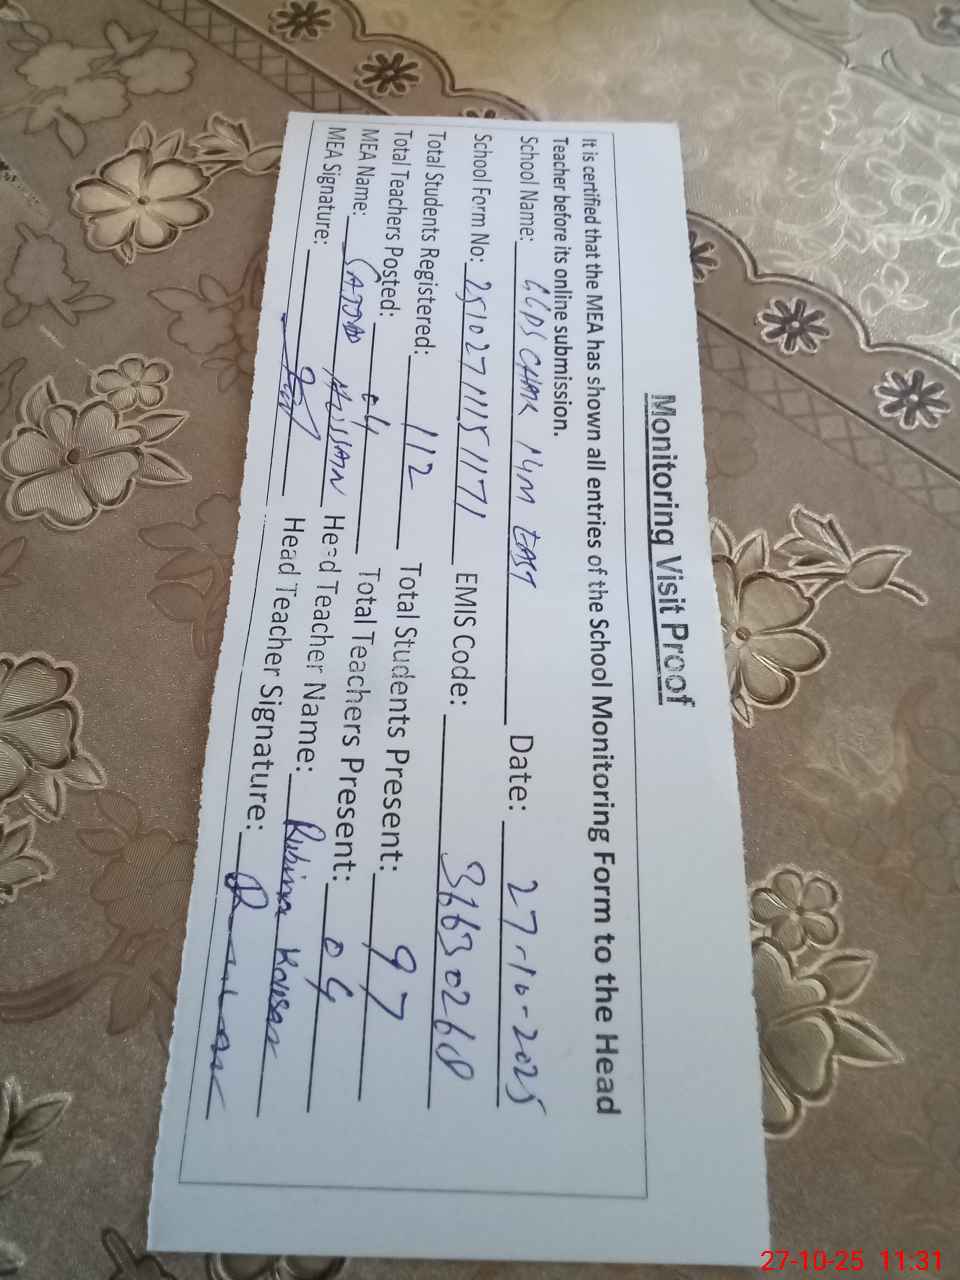 Monitoring Visit Proof
It is certified that the MEA has shown all entries of the School Monitoring Form to the Head
Teacher before its online submission.
School Name: GGPS CHAK 14M EAST Date: 27-10-2025
School Form No: 251027111511171 EMIS Code: 36630260
Total Students Registered: 112 Total Students Present: 97
Total Teachers Posted: 04 Total Teachers Present: 04
MEA Name: SAJJAD HUSSAIN Head Teacher Name: Rubina Kousar
MEA Signature: Head Teacher Signature:
27-10-25 11:31